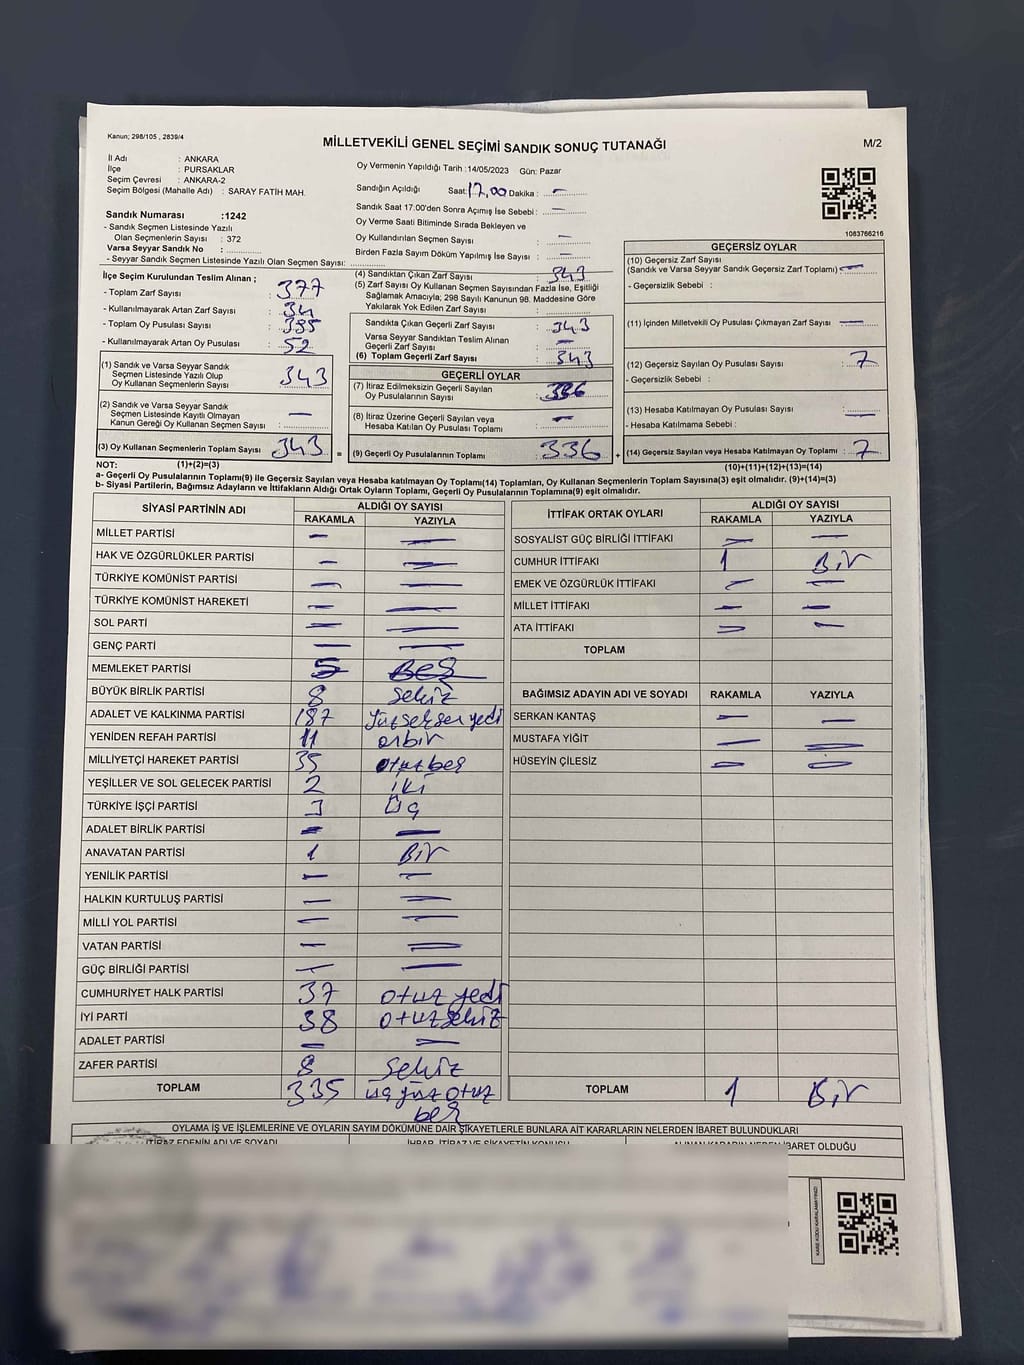 Kanun; 298/105 , 2839/4
MİLLETVEKİLİ GENEL SEÇİMİ SANDIK SONUÇ TUTANAĞI
M/2
İl Adı : ANKARA
İlçe : PURSAKLAR
Seçim Çevresi : ANKARA-2
Seçim Bölgesi (Mahalle Adı) : SARAY FATİH MAH.
Oy Vermenin Yapıldığı Tarih :14/05/2023 Gün: Pazar
Sandığın Açıldığı Saat: 17,00 Dakika : —
Sandık Saat 17.00'den Sonra Açımış İse Sebebi : —
Oy Verme Saati Bitiminde Sırada Bekleyen ve
Oy Kullandırılan Seçmen Sayısı : —
Birden Fazla Sayım Döküm Yapılmış İse Sayısı : —
1083766216
Sandık Numarası :1242
- Sandık Seçmen Listesinde Yazılı
Olan Seçmenlerin Sayısı : 372
Varsa Seyyar Sandık No :
- Seyyar Sandık Seçmen Listesinde Yazılı Olan Seçmen Sayısı:
İlçe Seçim Kurulundan Teslim Alınan ;
- Toplam Zarf Sayısı : 377
- Kullanılmayarak Artan Zarf Sayısı : 34
- Toplam Oy Pusulası Sayısı : 395
- Kullanılmayarak Artan Oy Pusulası : 52
(1) Sandık ve Varsa Seyyar Sandık
Seçmen Listesinde Yazılı Olup
Oy Kullanan Seçmenlerin Sayısı : 343
(2) Sandık ve Varsa Seyyar Sandık
Seçmen Listesinde Kayıtlı Olmayan
Kanun Gereği Oy Kullanan Seçmen Sayısı : —
(3) Oy Kullanan Seçmenlerin Toplam Sayısı : 343
(4) Sandıktan Çıkan Zarf Sayısı : 343
(5) Zarf Sayısı Oy Kullanan Seçmen Sayısından Fazla İse, Eşitliği
Sağlamak Amacıyla; 298 Sayılı Kanunun 98. Maddesine Göre
Yakılarak Yok Edilen Zarf Sayısı :
Sandıkta Çıkan Geçerli Zarf Sayısı : 343
Varsa Seyyar Sandıktan Teslim Alınan
Geçerli Zarf Sayısı : —
(6) Toplam Geçerli Zarf Sayısı : 343
GEÇERLİ OYLAR
(7) İtiraz Edilmeksizin Geçerli Sayılan
Oy Pusulalarının Sayısı : 336
(8) İtiraz Üzerine Geçerli Sayılan veya
Hesaba Katılan Oy Pusulası Toplamı : —
= (9) Geçerli Oy Pusulalarının Toplamı : 336 +
GEÇERSİZ OYLAR
(10) Geçersiz Zarf Sayısı
(Sandık ve Varsa Seyyar Sandık Geçersiz Zarf Toplamı) : —
- Geçersizlik Sebebi :
(11) İçinden Milletvekili Oy Pusulası Çıkmayan Zarf Sayısı : —
(12) Geçersiz Sayılan Oy Pusulası Sayısı : 7
- Geçersizlik Sebebi :
(13) Hesaba Katılmayan Oy Pusulası Sayısı : —
- Hesaba Katılmama Sebebi :
(14) Geçersiz Sayılan veya Hesaba Katılmayan Oy Toplamı : 7
NOT: (1)+(2)=(3)
(10)+(11)+(12)+(13)=(14)
a- Geçerli Oy Pusulalarının Toplamı(9) ile Geçersiz Sayılan veya Hesaba Katılmayan Oy Toplamı(14) Toplamları, Oy Kullanan Seçmenlerin Toplam Sayısına(3) eşit olmalıdır. (9)+(14)=(3)
b- Siyasi Partilerin, Bağımsız Adayların ve İttifakların Aldığı Ortak Oyların Toplamı, Geçerli Oy Pusulalarının Toplamına(9) eşit olmalıdır.
SİYASİ PARTİNİN ADI ALDIĞI OY SAYISI
RAKAMLA YAZIYLA
MİLLET PARTİSİ — —
HAK VE ÖZGÜRLÜKLER PARTİSİ — —
TÜRKİYE KOMÜNİST PARTİSİ — —
TÜRKİYE KOMÜNİST HAREKETİ — —
SOL PARTİ — —
GENÇ PARTİ — —
MEMLEKET PARTİSİ 5 BEŞ
BÜYÜK BİRLİK PARTİSİ 8 Sekiz
ADALET VE KALKINMA PARTİSİ 187 Yüzseksenyedi
YENİDEN REFAH PARTİSİ 11 onbir
MİLLİYETÇİ HAREKET PARTİSİ 35 otuzbeş
YEŞİLLER VE SOL GELECEK PARTİSİ 2 iki
TÜRKİYE İŞÇİ PARTİSİ 3 Üç
ADALET BİRLİK PARTİSİ — —
ANAVATAN PARTİSİ 1 Bir
YENİLİK PARTİSİ — —
HALKIN KURTULUŞ PARTİSİ — —
MİLLİ YOL PARTİSİ — —
VATAN PARTİSİ — —
GÜÇ BİRLİĞİ PARTİSİ — —
CUMHURİYET HALK PARTİSİ 37 otuz yedi
İYİ PARTİ 38 otuzsekiz
ADALET PARTİSİ — —
ZAFER PARTİSİ 8 Sekiz
TOPLAM 335 üçyüz otuz
beş
İTTİFAK ORTAK OYLARI ALDIĞI OY SAYISI
RAKAMLA YAZIYLA
SOSYALİST GÜÇ BİRLİĞİ İTTİFAKI — —
CUMHUR İTTİFAKI 1 Bir
EMEK VE ÖZGÜRLÜK İTTİFAKI — —
MİLLET İTTİFAKI — —
ATA İTTİFAKI — —
TOPLAM
BAĞIMSIZ ADAYIN ADI VE SOYADI RAKAMLA YAZIYLA
SERKAN KANTAŞ — —
MUSTAFA YİĞİT — —
HÜSEYİN ÇİLESİZ — —
TOPLAM 1 Bir
OYLAMA İŞ VE İŞLEMLERİNE VE OYLARIN SAYIM DÖKÜMÜNE DAİR ŞİKAYETLERLE BUNLARA AİT KARARLARIN NELERDEN İBARET BULUNDUKLARI
İTİRAZ EDENİN ADI VE SOYADI İHBAR, İTİRAZ VE ŞİKAYETİN KONUSU ALINAN KARARIN NEDEN İBARET OLDUĞU
KARE KODU KARALAMAYINIZ!